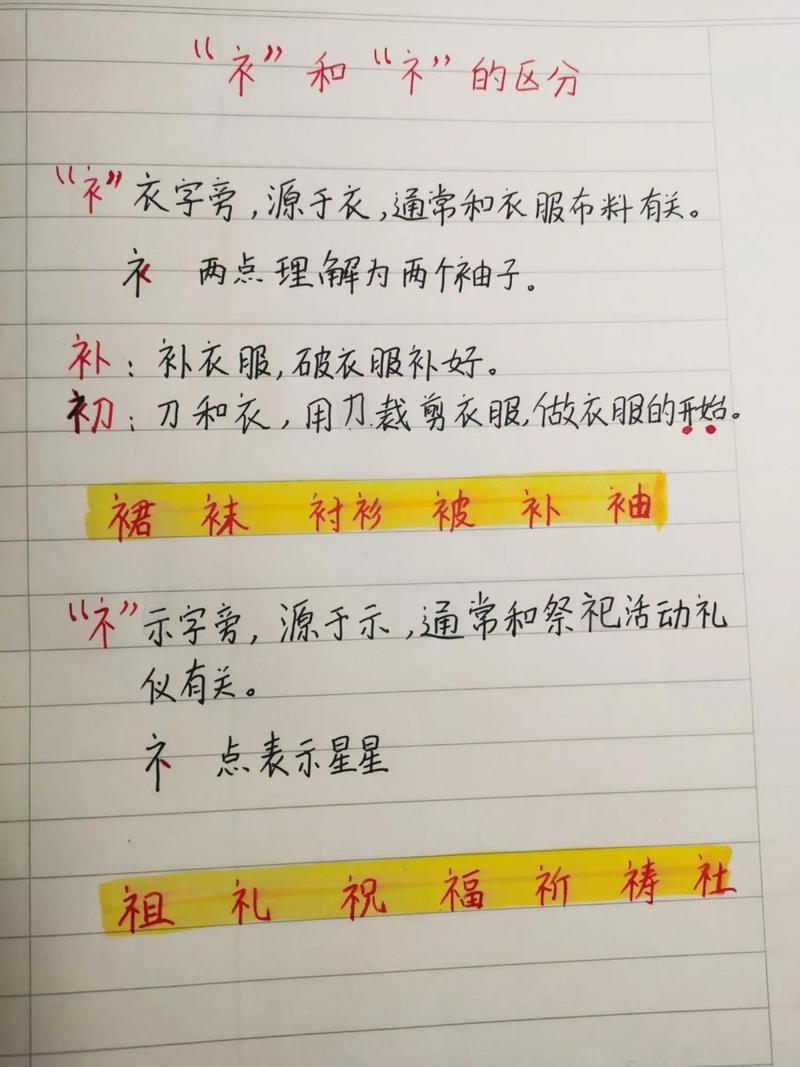 “衤”和“礻”的区分
“衤”衣字旁,源于衣,通常和衣服布料有关。
衤 两点理解为两个袖子。
补:补衣服,破衣服补好。
初:刀和衣,用刀裁剪衣服,做衣服的开始。
裙 袜 衬衫 被 补 袖
“礻”示字旁,源于示,通常和祭祀活动礼
仪有关。
礻 点表示星星
祖 礼 祝 福 祈 祷 社